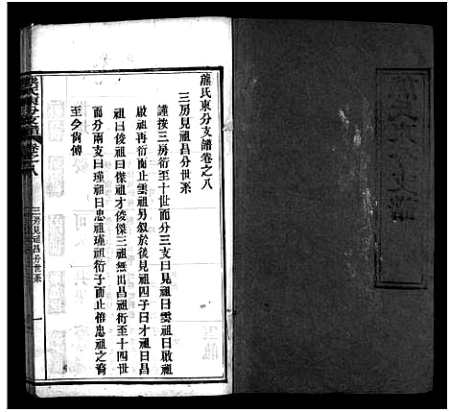 熊氏東分支譜卷之八
三房見祖昌分世系
謹按三房衍至十世而分三支曰見祖曰雲祖曰啟祖
啟祖再衍而止雲祖另叙於後見祖四子曰才祖曰昌
祖曰俊祖曰傑祖才俊傑三祖無出昌祖衍至十四世
而分兩支曰瑾祖曰忠祖瑾祖衍子而止惟忠祖之裔
至今尚傳
三房見祖昌分世系
一